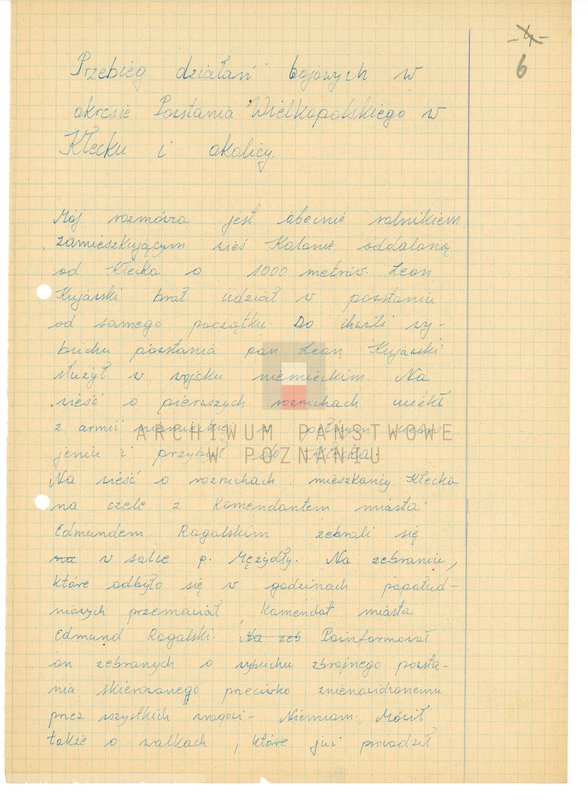 -4-
6
Przebieg działań bojowych w
okresie Powstania Wielkopolskiego w
Kłecku i okolicy.
Mój rozmówca jest obecnie rolnikiem
zamieszkującym wieś Kolonie oddaloną
od Kłecka o 1000 metrów. Leon
Kujawski brał udział w powstaniu
od samego początku. Do chwili wy-
buchu powstania pan Leon Kujawski
służył w wojsku niemieckim. Na
wieść o pierwszych rozruchach uciekł
z armii niemieckiej w pełnym uzbro-
jeniu i przybył do Kłecka.
Na wieść o rozruchach mieszkańcy Kłecka
na czele z Komendantem miasta
Edmundem Rogalskim zebrali się
na w salce p. Mężydły. Na zebraniu,
które odbyło się w godzinach popołud-
niowych przemawiał Komendat miasta
Edmund Rogalski. Na zeb. Poinformował
on zebranych o wybuchu zbrojnego powsta-
nia skierowanego przeciwko znienawidzonemu
przez wszystkich wrogowi - Niemcom. Mówił
także o walkach, które już prowadził
ARCHIWUM PAŃSTWOWE
W POZNANIU